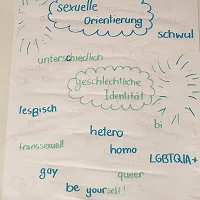 sexuelle
Orientierung
schwul
unterschiedlich
geschlechtliche
Identität
lesbisch
bi
hetero
transsexuell
homo
LGBTQIA+
gay
queer
be yourself!